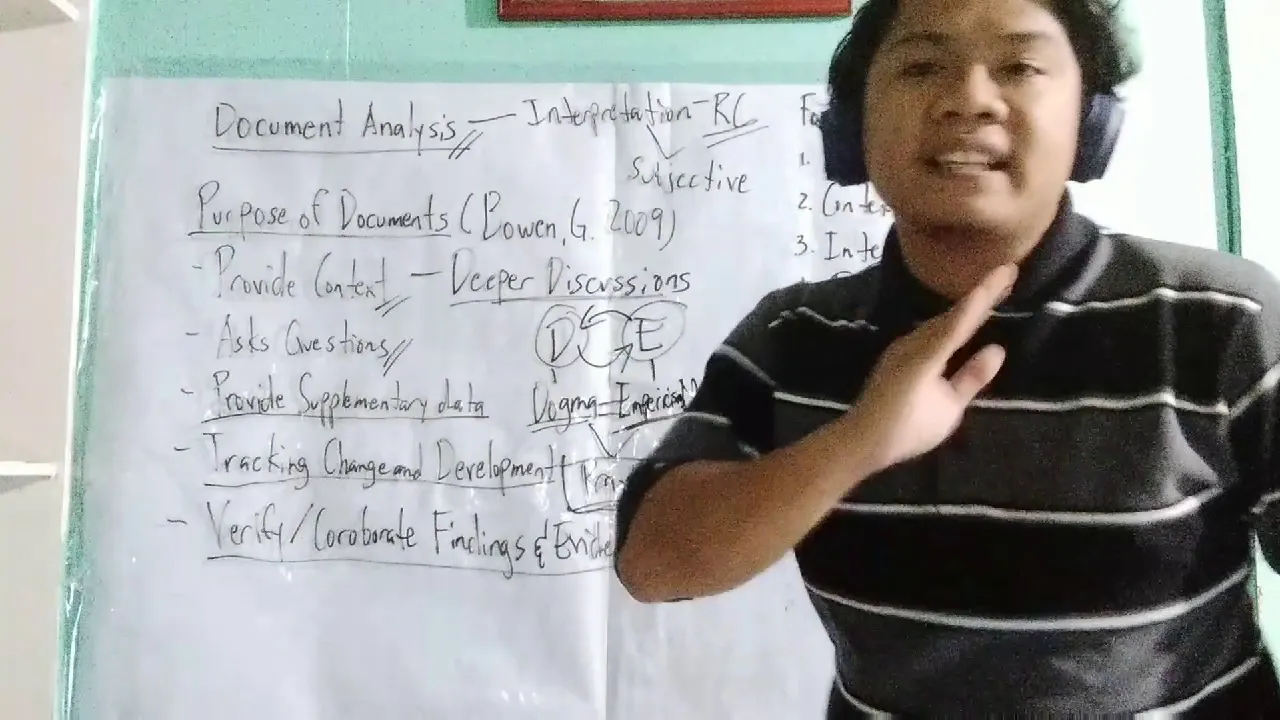 Document Analysis — Interpretation - RC
Subjective
Purpose of Documents (Bowen, G. 2009)
- Provide Context — Deeper Discussions
- Asks Questions
D E
- Provide Supplementary data
Dogma
- Tracking Change and Development
- Verify/Coroborate Findings &
1.
2.
3.